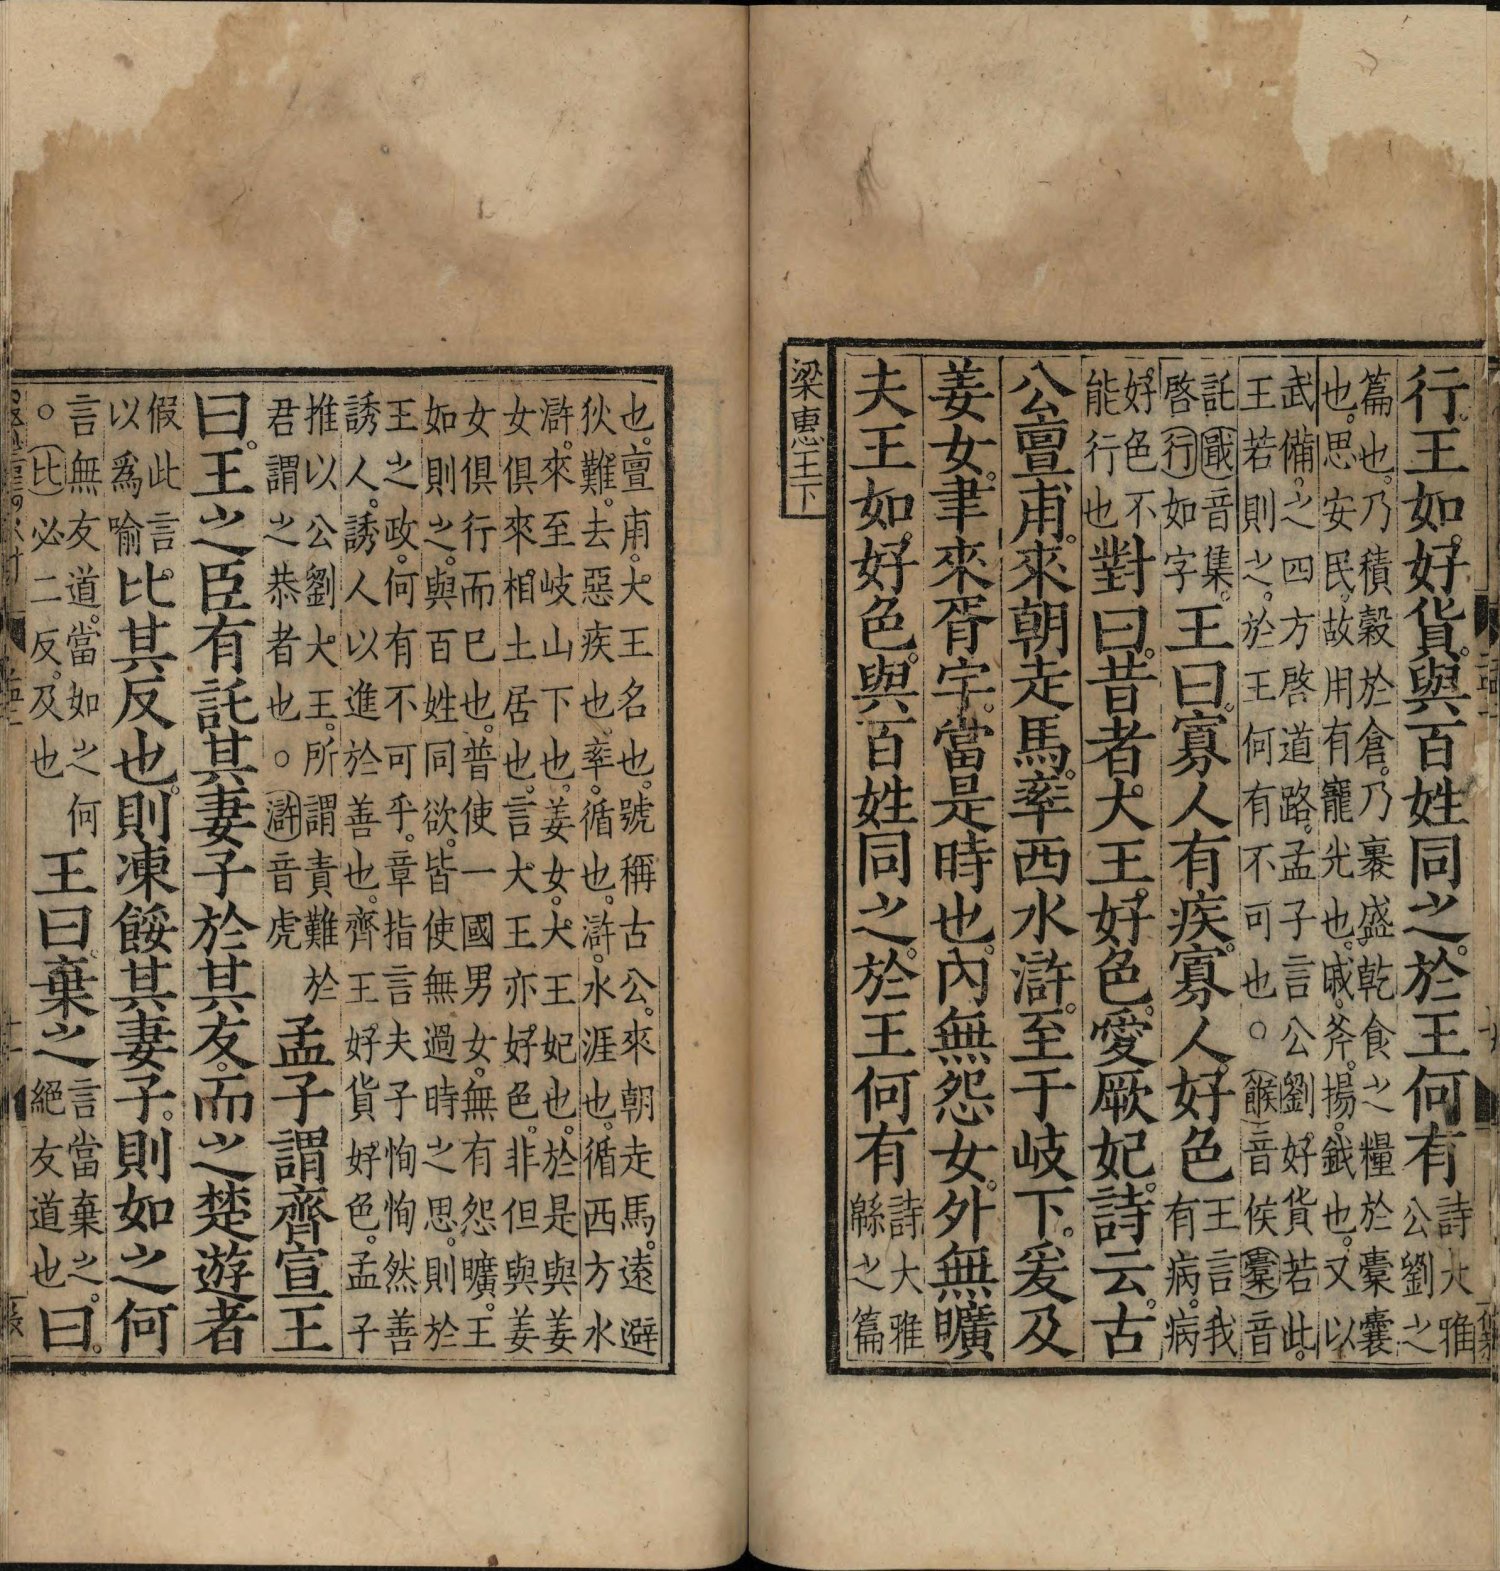 行。王如好貨。與百姓同之。於王何有詩大雅公劉之
篇也。乃積穀於倉。乃裹盛乾食之糧於橐囊
也。思安民。故用有寵光也。戚。斧。揚。鉞也。又以
武備。之四方啓道路。孟子言公劉好貨若此。
王若則之。於王何有不可也。○餱音侯橐音
託戢音集。啓行如字王曰。寡人有疾。寡人好色王言我有病。病
好色不能行也對曰。昔者大王好色。愛厥妃。詩云。古
公亶甫。來朝走馬。率西水滸。至于岐下。爰及
姜女。聿來胥宇。當是時也。內無怨女。外無曠
夫王如好色。與百姓同之。於王何有詩大雅緜之篇
梁惠王下
也。亶甫。大王名也。號稱古公。來朝走馬。遠避
狄難。去惡疾也。率。循也。滸。水涯也。循西方水
滸。來至岐山下也。姜女。大王妃也。於是與姜
女俱來相土居也。言大王亦好色。非但與姜
女俱行而已也。普使一國男女。無有怨曠。王
如則之。與百姓同欲。皆使無過時之思。則於
王之政。何有不可乎。章指言夫子恂恂然善
誘人。誘人以進於善也。齊王好貨好色。孟子
推以公劉大王。所謂責難於君謂之恭者也。○滸音虎孟子謂齊宣王
曰。王之臣有託其妻子於其友。而之楚遊者
假此言。以爲喻比其反也。則凍餒其妻子。則如之何
言無友道。當如之何。○比必二反。及也王曰。棄之言當棄之。絕友道也曰。